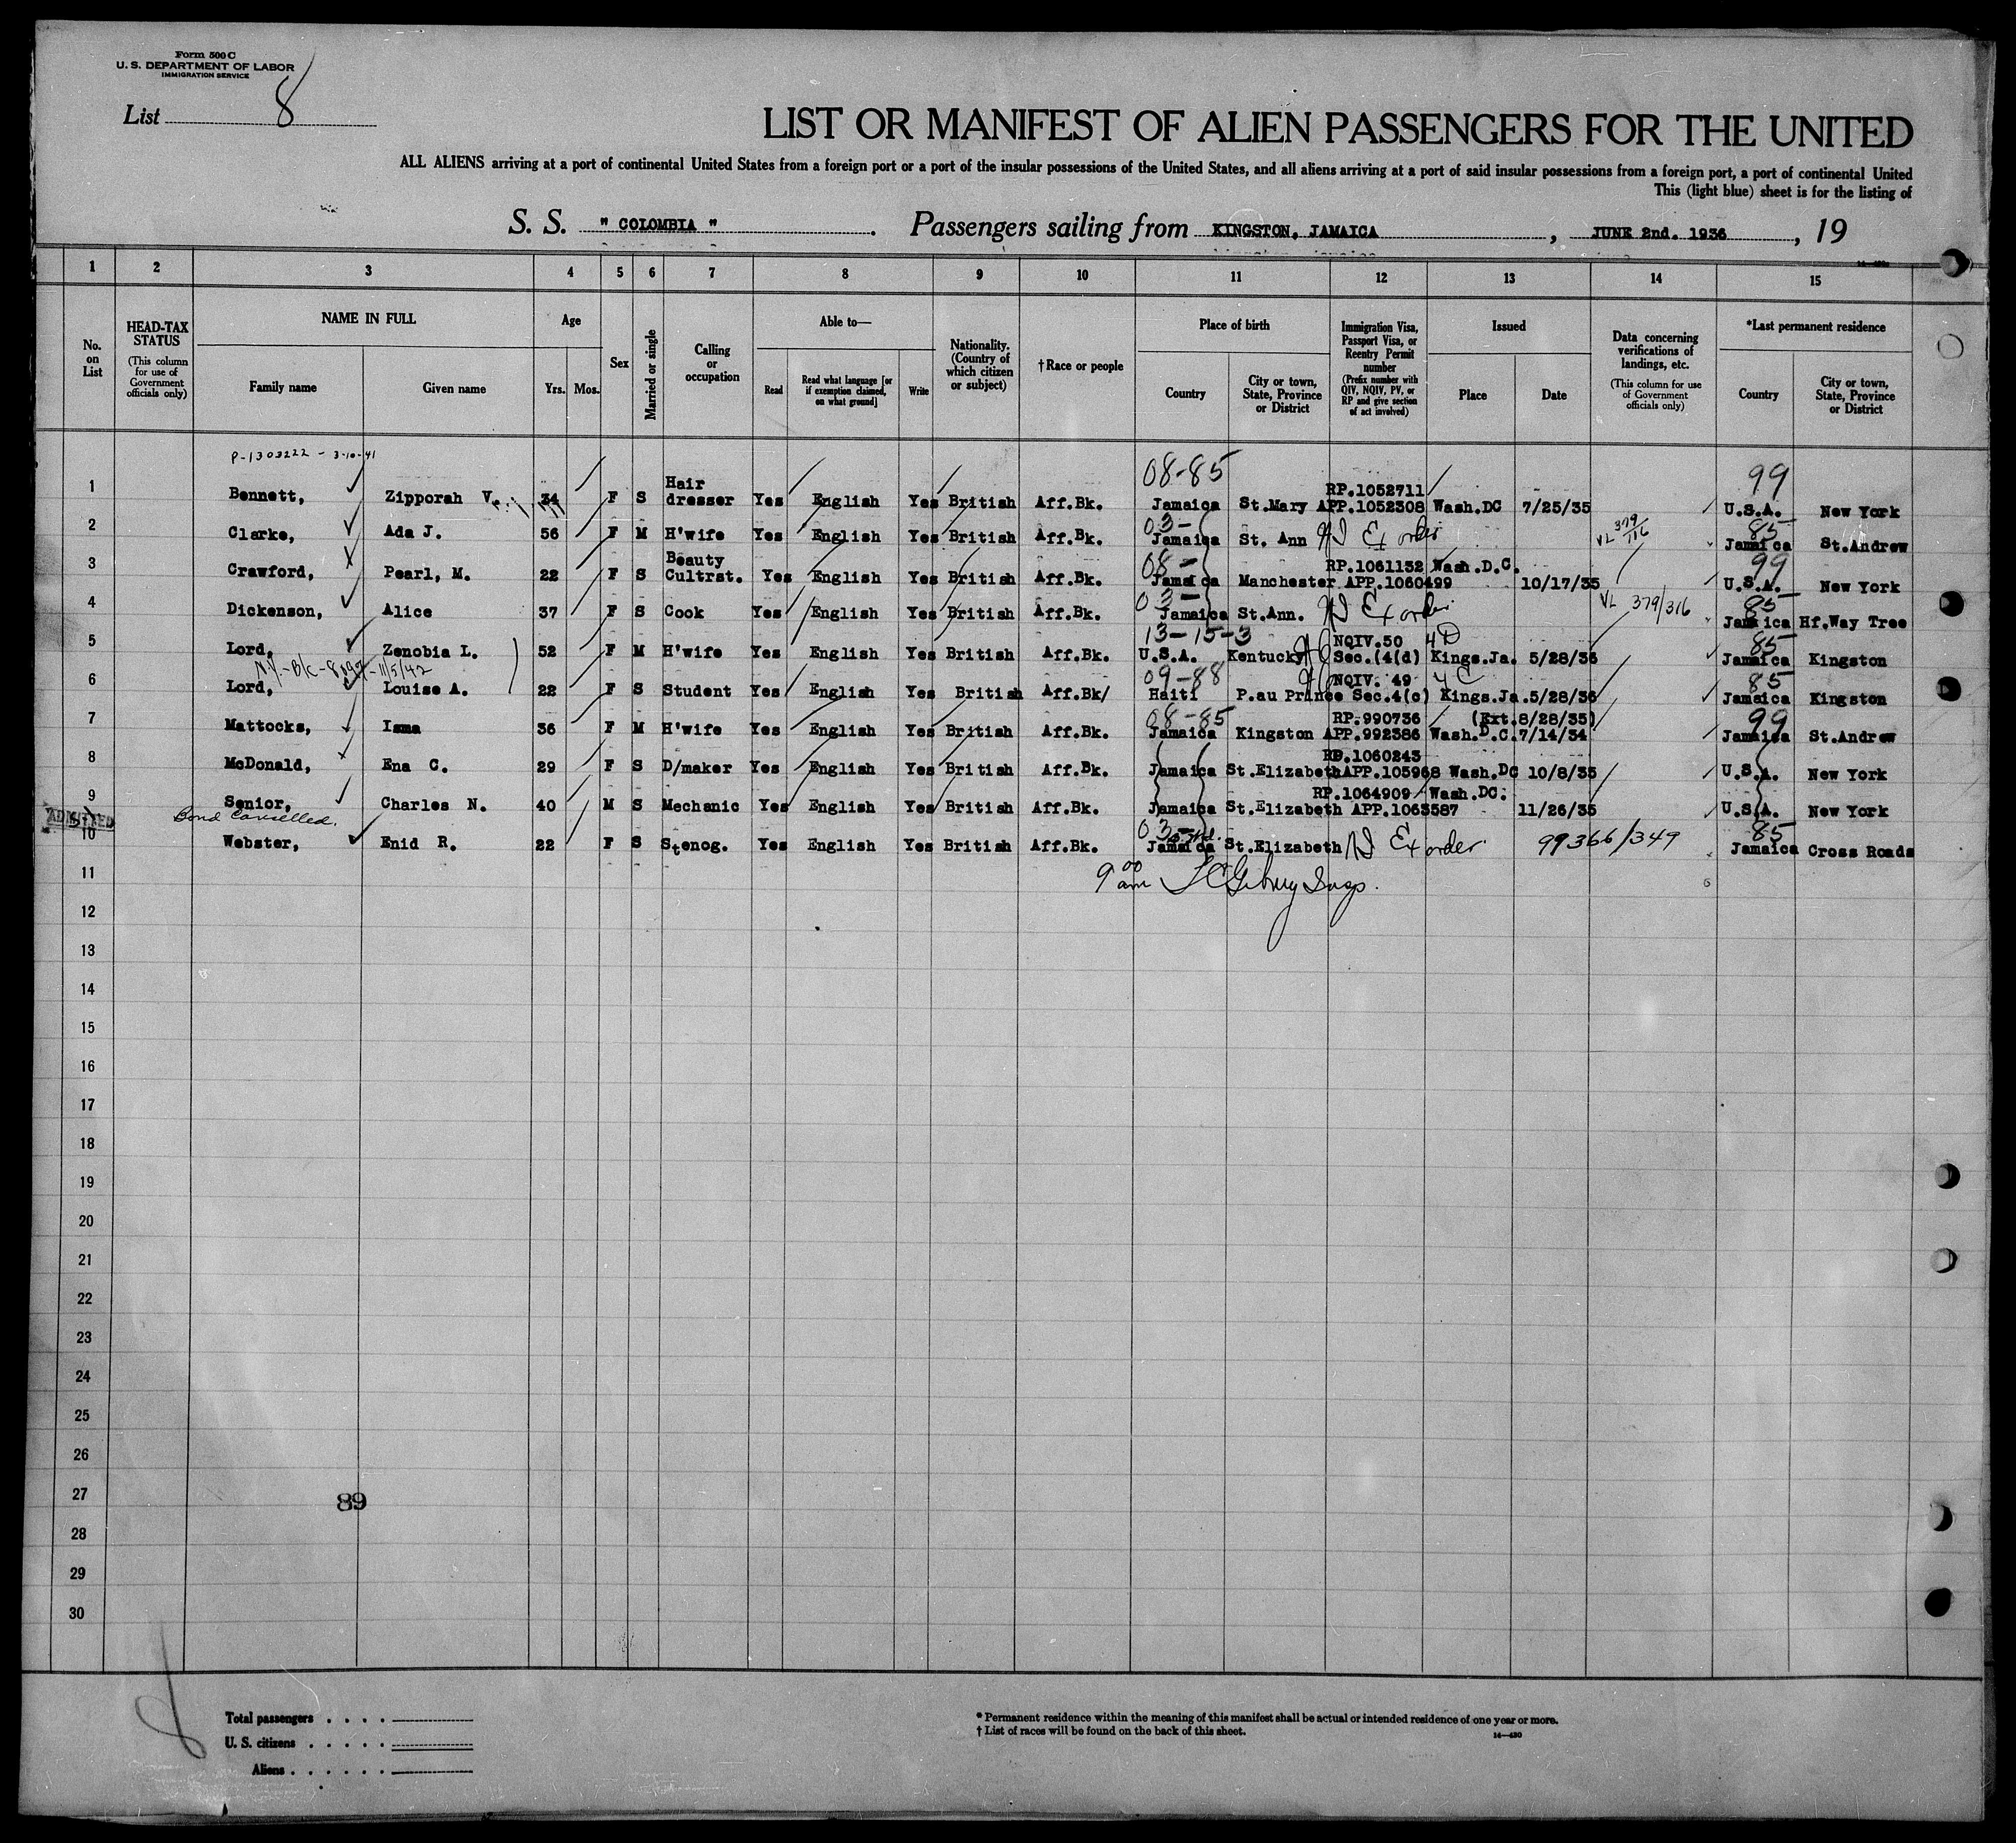 Form 500 C
U. S. DEPARTMENT OF LABOR
IMMIGRATION SERVICE
List 8
LIST OR MANIFEST OF ALIEN PASSENGERS FOR THE UNITED
ALL ALIENS arriving at a port of continental United States from a foreign port or a port of the insular possessions of the United States, and all aliens arriving at a port of said insular possessions from a foreign port, a port of continental United
This (light blue) sheet is for the listing of
S. S. " COLOMBIA ". Passengers sailing from KINGSTON, JAMAICA, JUNE 2nd. 1936, 19
1 2 3 4 5 6 7 8 9 10 11 12 13 14 15
No. on List
HEAD-TAX STATUS (This column for use of Government officials only)
NAME IN FULL Family name Given name
Age Yrs. Mos.
Sex
Married or single
Calling or occupation
Able to— Read Read what language [or if exemption claimed, on what ground] Write
Nationality. (Country of which citizen or subject)
† Race or people
Place of birth Country City or town, State, Province or District
Immigration Visa, Passport Visa, or Reentry Permit number (Prefix number with QIV, NQIV, PV, or RP and give section of act involved)
Issued Place Date
Data concerning verifications of landings, etc. (This column for use of Government officials only)
*Last permanent residence Country City or town, State, Province or District
P-1303222 - 3-10-41
08-85 99
1 Bennett, Zipporah V. 34 F S Hair dresser Yes English Yes British Aff.Bk. Jamaica St.Mary RP.1052711 APP.1052308 Wash.DC 7/25/35 U.S.A. New York
03- 85
2 Clarke, Ada J. 56 F M H'wife Yes English Yes British Aff.Bk. Jamaica St. Ann Ex order VL 379/116 Jamaica St.Andrew
08- 99
3 Crawford, Pearl, M. 22 F S Beauty Cultrst. Yes English Yes British Aff.Bk. Jamaica Manchester RP.1061132 APP.1060499 Wash.D.C. 10/17/35 U.S.A. New York
03- 85
4 Dickenson, Alice 37 F S Cook Yes English Yes British Aff.Bk. Jamaica St.Ann. Ex order VL 379/316 Jamaica Hf.Way Tree
13-15-3 4D 85
5 Lord, Zenobia L. 52 F M H'wife Yes English Yes British Aff.Bk. U.S.A. Kentucky NQIV.50 Sec.(4(d) Kings.Ja. 5/28/36 Jamaica Kingston
09-88 4C 85
6 Lord, Louise A. 22 F S Student Yes English Yes British Aff.Bk/ Haiti P.au Prince NQIV. 49 Sec.4(c) Kings.Ja. 5/28/36 Jamaica Kingston
08-85 99
7 Mattocks, Isma 36 F M H'wife Yes English Yes British Aff.Bk. Jamaica Kingston RP.990736 APP.992386 Wash.D.C. (Ext.8/28/35) 7/14/34 Jamaica St.Andrew
8 McDonald, Ena C. 29 F S D/maker Yes English Yes British Aff.Bk. Jamaica St.Elizabeth RP.1060243 APP.105968 Wash.DC 10/8/35 U.S.A. New York
9 Senior, Charles N. 40 M S Mechanic Yes English Yes British Aff.Bk. Jamaica St.Elizabeth RP.1064909 APP.1063587 Wash.DC. 11/26/35 U.S.A. New York
ADMITTED Bond Cancelled.
03- 85
10 Webster, Enid R. 22 F S Stenog. Yes English Yes British Aff.Bk. Jamaica St.Elizabeth Ex order 99366/349 Jamaica Cross Roads
11 9 00 am
12
13
14
15
16
17
18
19
20
21
22
23
24
25
26
27 89
28
29
30
8
Total passengers
U. S. citizens
Aliens
* Permanent residence within the meaning of this manifest shall be actual or intended residence of one year or more.
† List of races will be found on the back of this sheet.
14—430